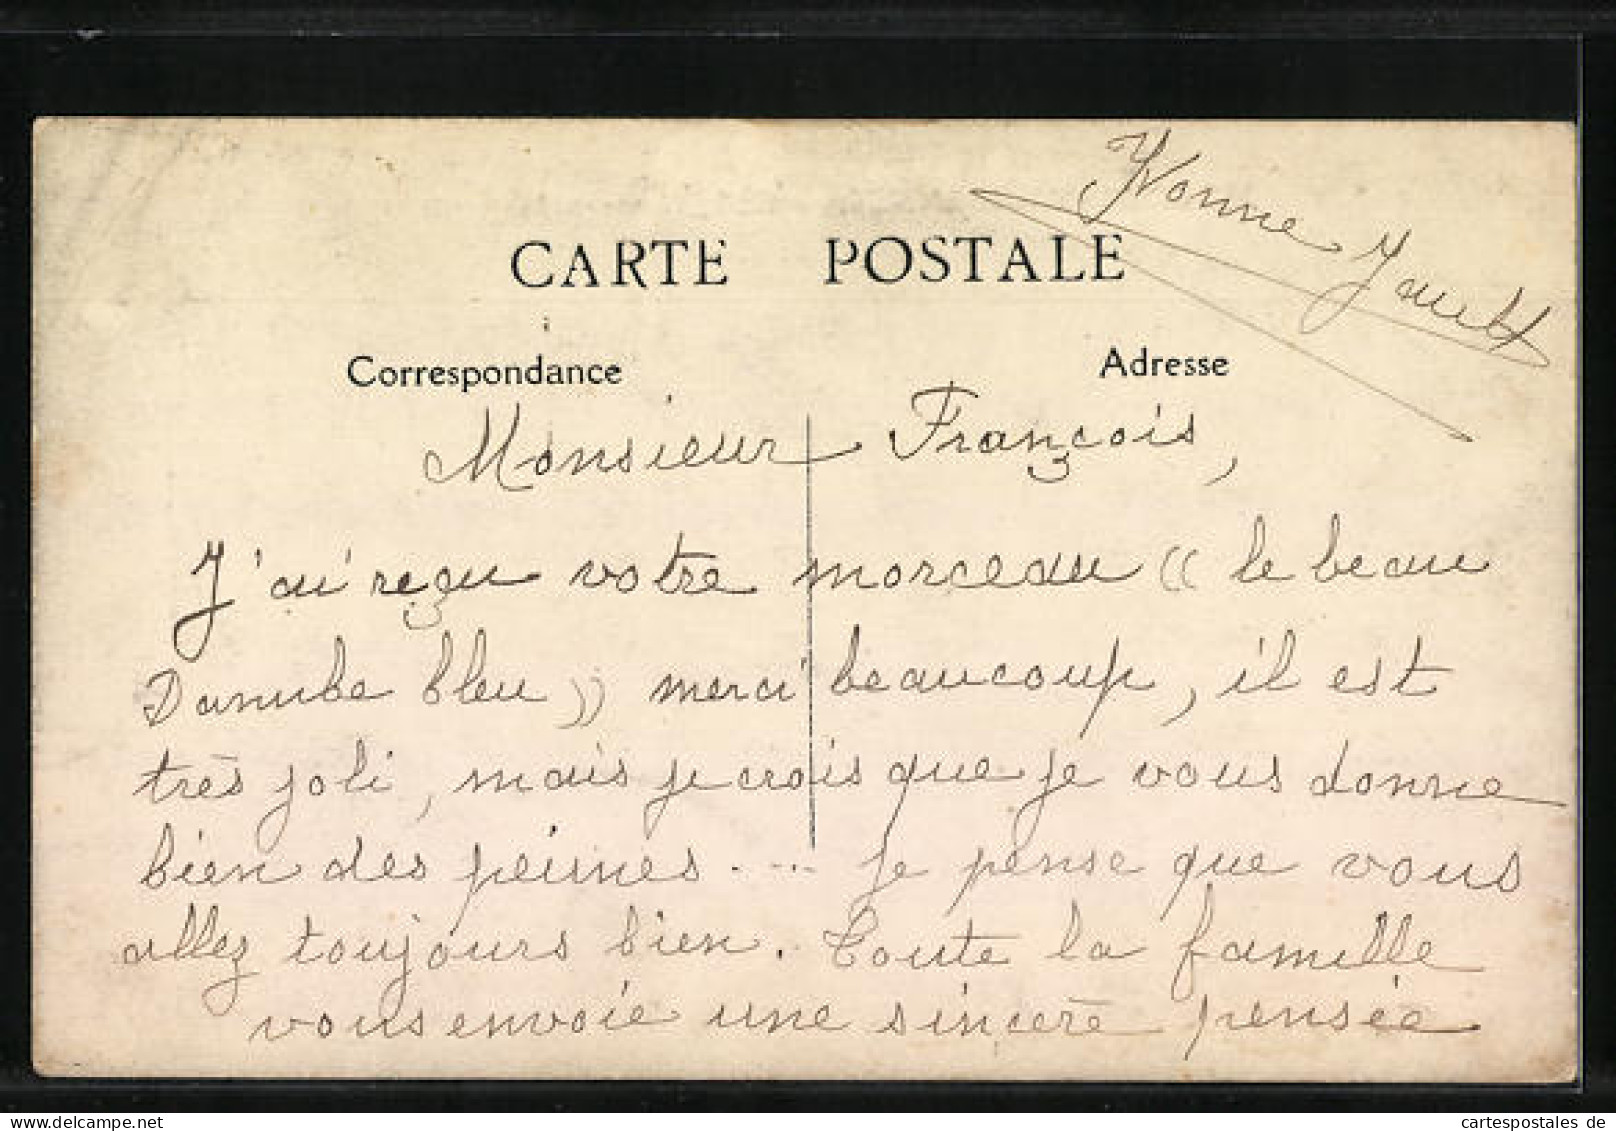 Yvonne
CARTE POSTALE
Correspondance
Adresse
Monsieur François,
J'ai reçu votre morceau (( le beau
Danube bleu )) merci beaucoup, il est
très joli, mais je crois que je vous donne
bien des peines.... je pense que vous
allez toujours bien. Toute la famille
vous envoie une sincère pensée
cartespostales de